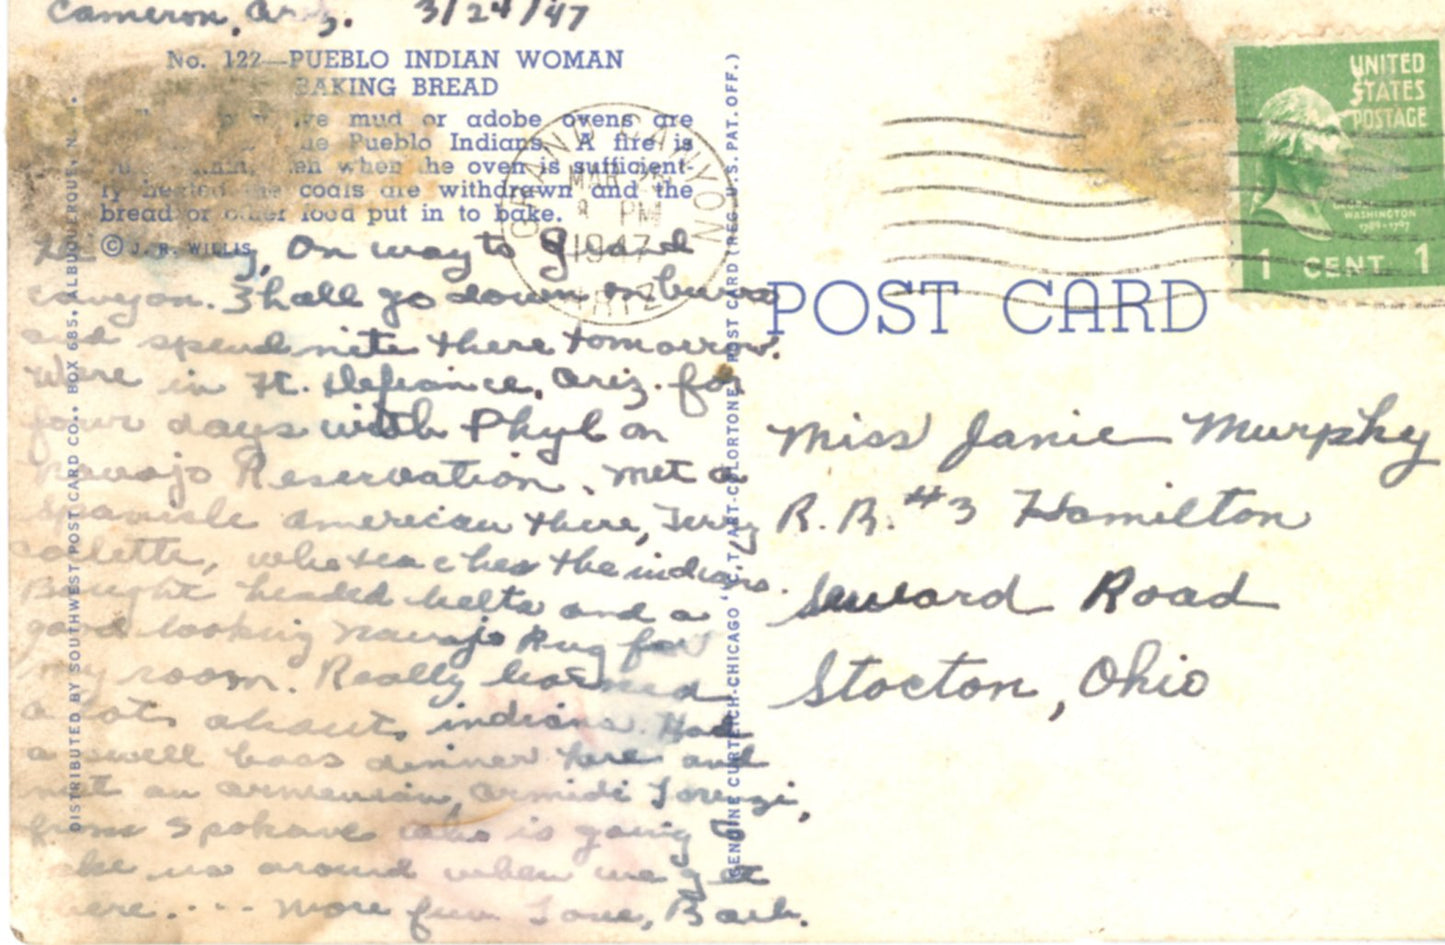 Cameron, Ariz. 3/24/47
No. 122—PUEBLO INDIAN WOMAN
BAKING BREAD
mud or adobe ovens are
Pueblo Indians. A fire is
when the oven is sufficient-
ly heated the coals are withdrawn and the
bread or other food put in to bake.
© J. R. WILLIS
On way to Grand
Canyon. Shall go down on burros
and spend nite there tomorrow.
Were in Ft. Defiance, Ariz. for
four days with Phyl on
Navajo Reservation. Met a
Spanish American there, Terry
who teaches the indians.
Bought beaded belts and a
good looking Navajo Rug for
my room. Really learned
a lot about indians. Had
a swell bass dinner here and
met an armenian,
from Spokane who is going to
take us around when we get
there.... More fun. Love, Barb.
DISTRIBUTED BY SOUTHWEST POST CARD CO., BOX 685, ALBUQUERQUE, N. M.
GENUINE CURTEICH-CHICAGO "C. T. ART-COLORTONE" POST CARD (REG. U.S. PAT. OFF.)
GRAND CANYON
MAR
8 PM
1947
ARIZ
UNITED
STATES
POSTAGE
WASHINGTON
1789-1797
1 CENT 1
POST CARD
Miss Janie Murphy
R. R. #3 Hamilton
Seward Road
Stocton, Ohio